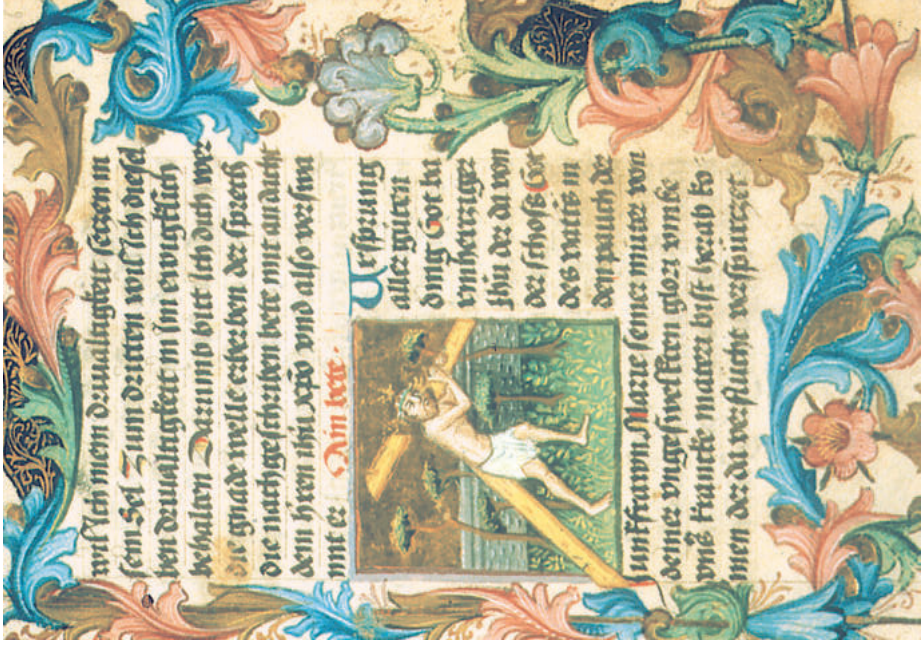 wil Ich mein drivaltigkeit setzen in
sein Sel Zum dritten wil Ich diesel
ben drivaltigkeit in Im ewigklich
behalten Darumb bitt Ich dich wer
die gnade welle erberben der sprech
die nachgeschriben bete mit andacht
dem hren ihu xpo vnd also verswa
int er Am bete.
Ursprung
aller guten
ding Got ba
rmhertziger
Ihu der da von
der schosß Got
des vatts in
den pauch der
iunkfrawn Marie seiner muter von
deiner vngeswechten glori vmbe
vnß krancke mater bist herab ko
men der da verflucht verspurtzet